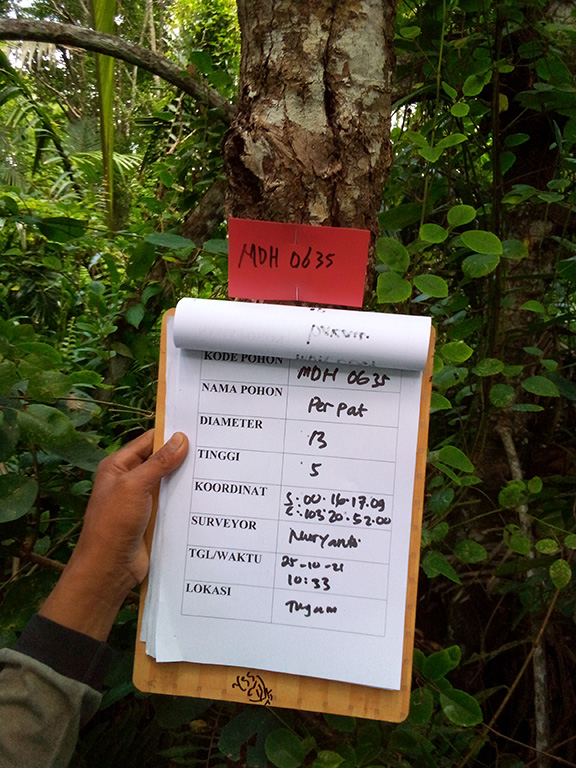 MDH 0635
KODE POHON MDH 0635
NAMA POHON Perpat
DIAMETER 13
TINGGI 5
KOORDINAT S: 00.16.17.09
E: 103 20.52.00
SURVEYOR Nuryanti
TGL/WAKTU 25-10-21
10:33
LOKASI